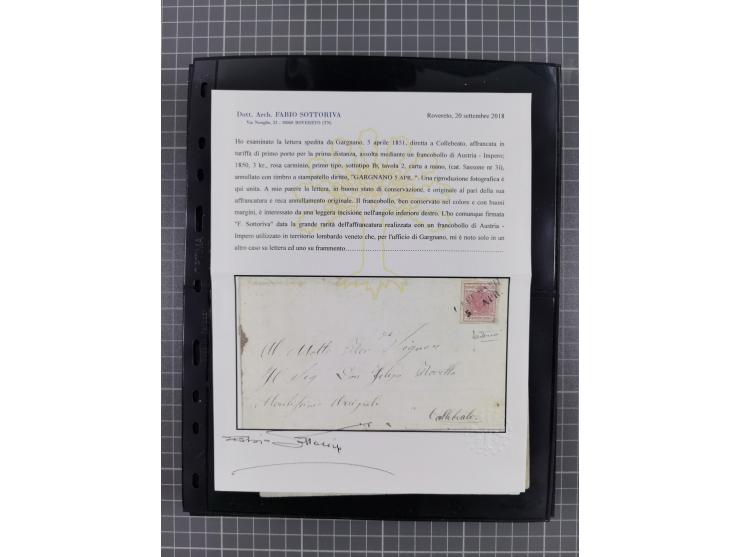 Dott. Arch. FABIO SOTTORIVA
Via Noriglio, 31 - 38068 ROVERETO (TN)
Rovereto, 20 settembre 2018
Ho esaminato la lettera spedita da Gargnano, 5 aprile 1851, diretta a Collebeato, affrancata in
tariffa di primo porto per la prima distanza, assolta mediante un francobollo di Austria - Impero;
1850, 3 kr., rosa carminio, primo tipo, sottotipo Ib, tavola 2, carta a mano, (cat. Sassone nr 3i),
annullato con timbro a stampatello diritto, "GARGNANO 5 APR.". Una riproduzione fotografica è
qui unita. A mio parere la lettera, in buono stato di conservazione, è originale al pari della sua
affrancatura e reca annullamento originale. Il francobollo, ben conservato nel colore e con buoni
margini, è interessato da una leggera incisione nell'angolo inferiore destro. L'ho comunque firmata
"F. Sottoriva" data la grande rarità dell'affrancatura realizzata con un francobollo di Austria -
Impero utilizzato in territorio lombardo veneto che, per l'ufficio di Gargnano, mi è noto solo in un
altro caso su lettera ed uno su frammento
5 APR.
Al Molto
Il Sig Don
Collebeato